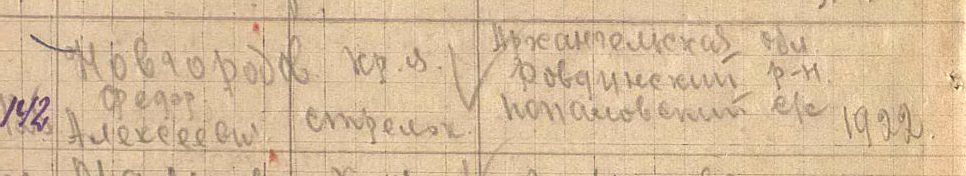 142
Новгородов
Федор
Алексееви
кр.а.
стрелок
Архангельская обл.
Ровдинский р-н.
с/с
1922.